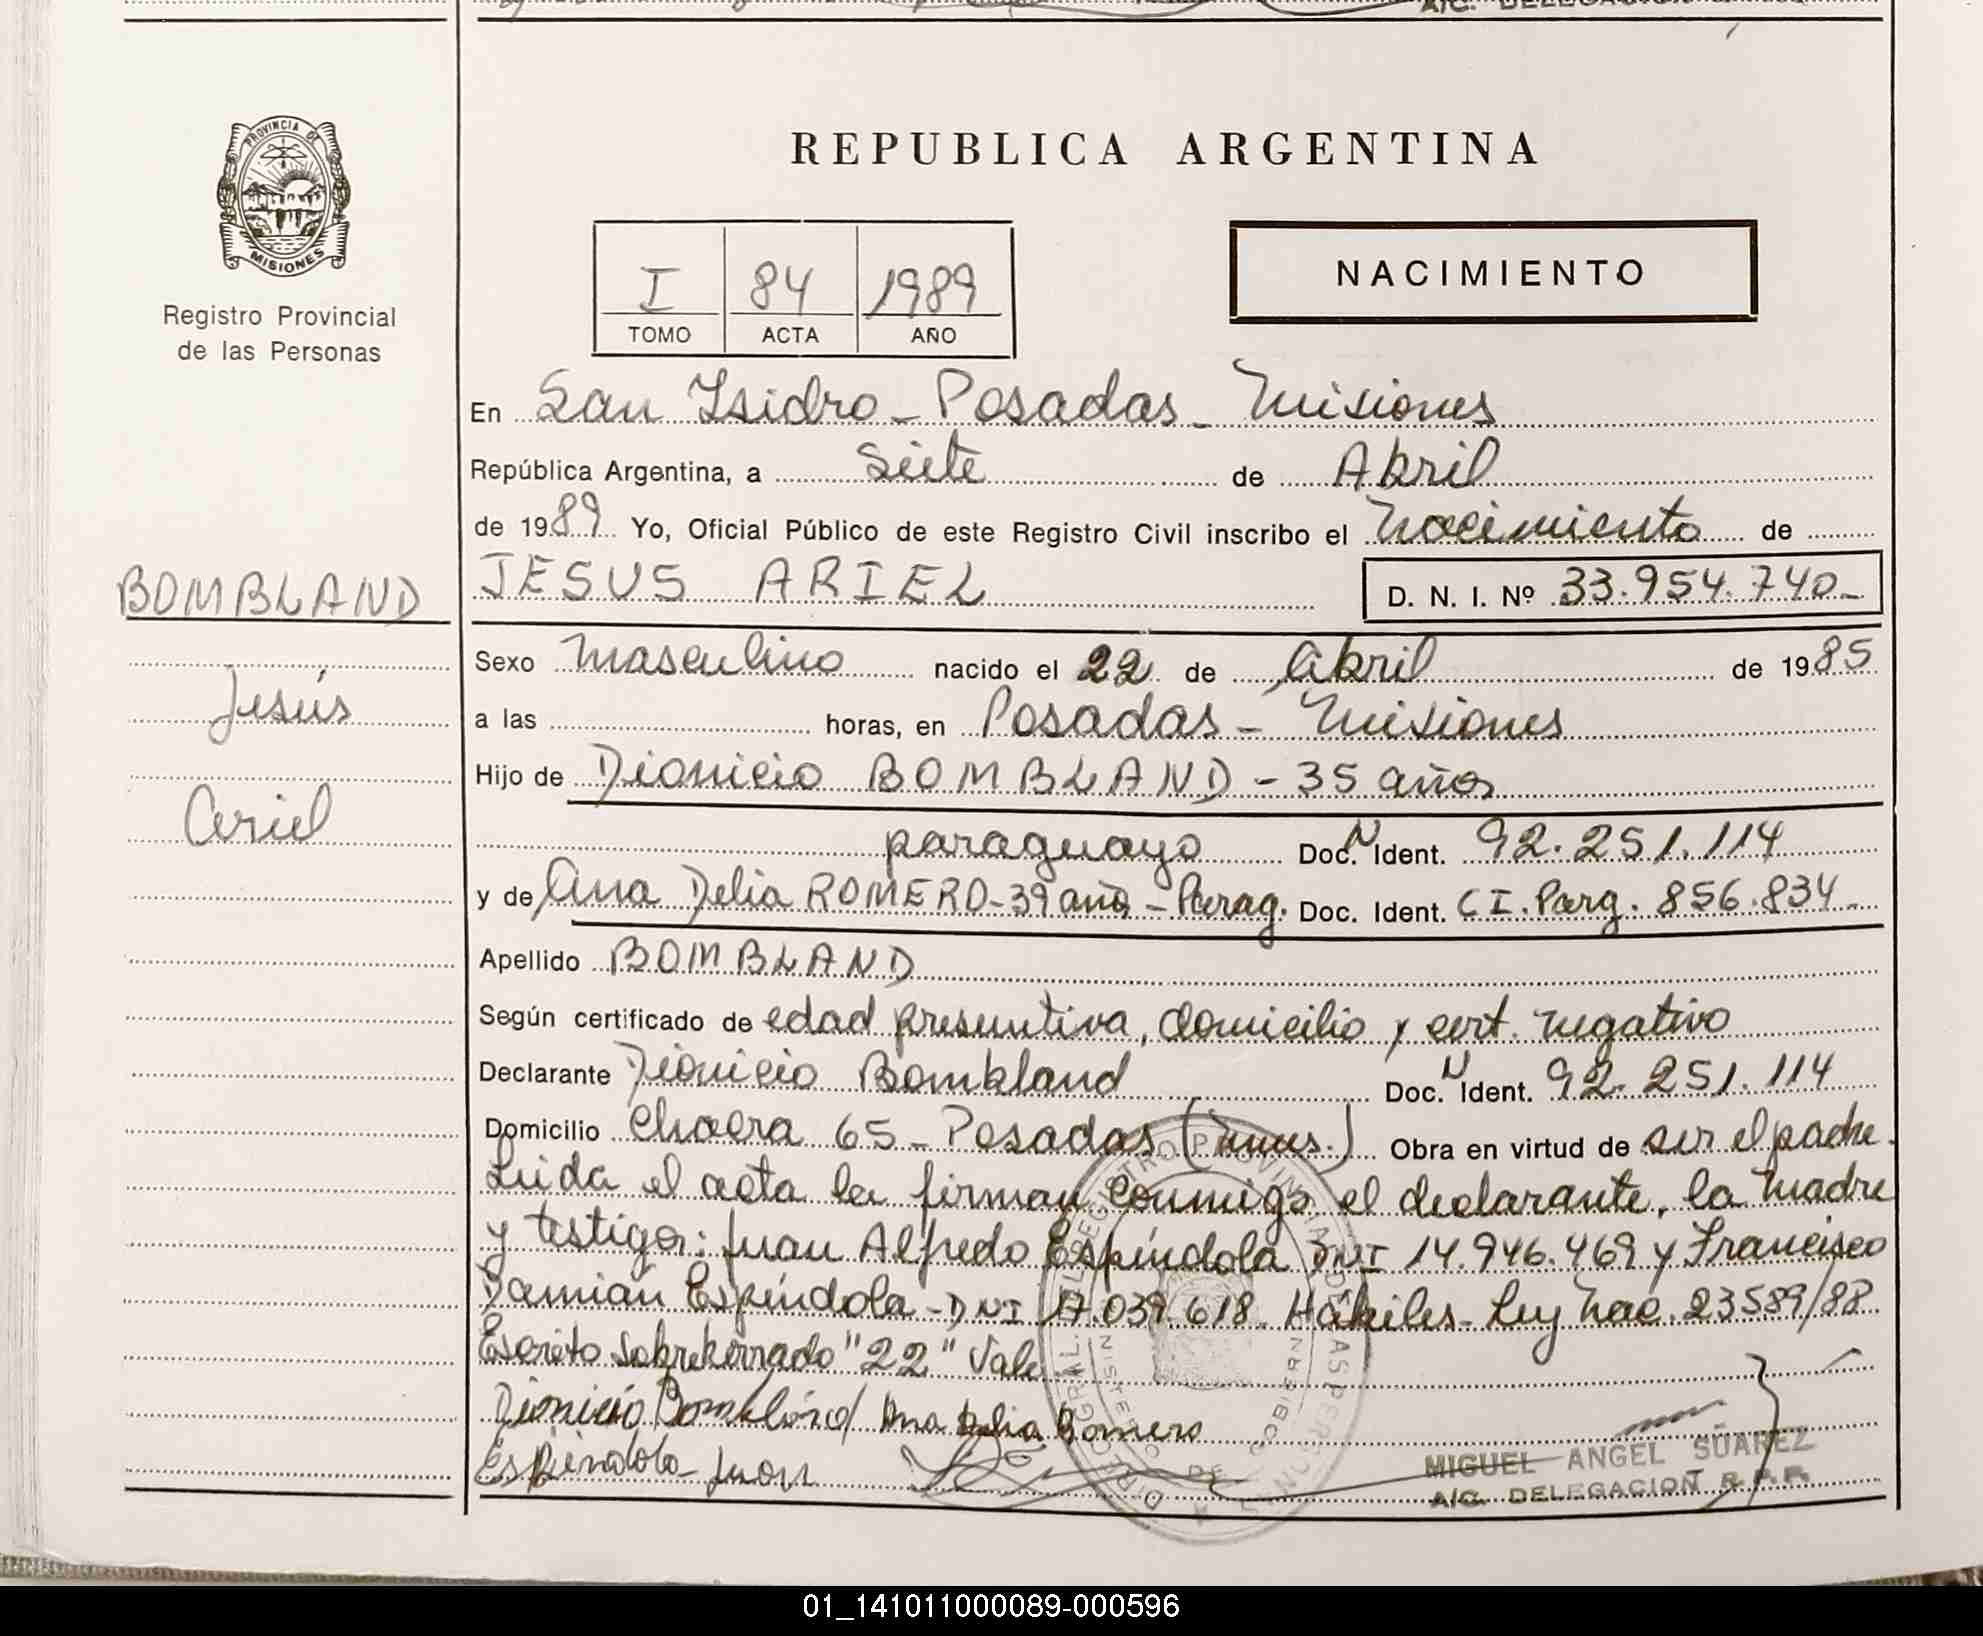 A/C. DELEGACION
PROVINCIA DE
MISIONES
Registro Provincial
de las Personas
REPUBLICA ARGENTINA
I 84 1989
TOMO ACTA AÑO
NACIMIENTO
En San Isidro - Posadas - Misiones
República Argentina, a Siete de Abril
de 1989 Yo, Oficial Público de este Registro Civil inscribo el Nacimiento de
BOMBLAND
Jesús
Ariel
JESUS ARIEL D. N. I. Nº 33.954.740-
Sexo Masculino nacido el 22 de Abril de 1985
a las horas, en Posadas - Misiones
Hijo de Dionicio BOMBLAND - 35 años
paraguayo Doc. N Ident. 92.251.114
y de Ana Delia ROMERO - 39 años - Parag. Doc. Ident. C I. Parg. 856.834-
Apellido BOMBLAND
Según certificado de edad presuntiva, domicilio y cert. negativo
Declarante Dionicio Bombland Doc. N Ident. 92.251.114
Domicilio Chacra 65 - Posadas (Mnes.) Obra en virtud de ser el padre.
Leida el acta la firman conmigo el declarante, la madre
y testigos: Juan Alfredo Espíndola DNI 14.946.469 y Francisco
Damián Espíndola - DNI 17.039.618. Hábiles - Ley Nac. 23589/88
Escrito sobreborrado "22" Vale
Dionicio Bombland Ana Delia Romero
Espindola Juan
MIGUEL ANGEL SUAREZ
A/C. DELEGACION R.P.P.
01_141011000089-000596